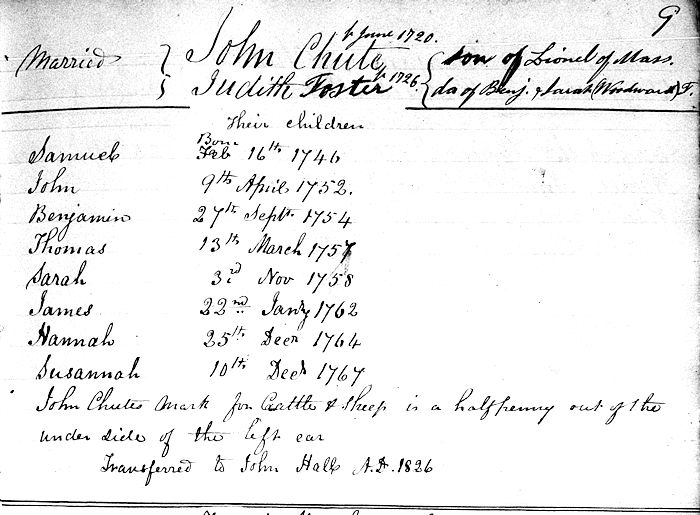 9
Married } John Chute b June 1720. { son of Lionel of Mass.
Judith Foster b 1726. { da of Benj. & Sarah (Woodward) F.
Their children
Born
Samuel Feb 16th 1746
John 9th April 1752.
Benjamin 27th Sept. 1754
Thomas 13th March 1757
Sarah 3rd Nov 1758
James 22nd Jany 1762
Hannah 25th Decr 1764
Susannah 10th Decr 1767
John Chutes mark for Cattle & Sheep is a halfpenny out of the
under side of the left ear
Transferred to John Hall A.D. 1826